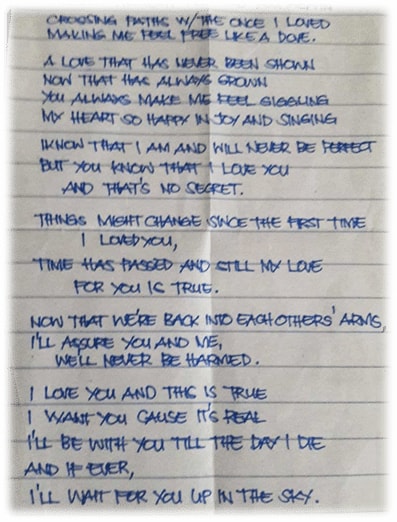 CROSSING PATHS W/ THE ONCE I LOVED
MAKING ME FEEL FREE LIKE A DOVE.
A LOVE THAT HAS NEVER BEEN SHOWN
NOW THAT HAS ALWAYS GROWN
YOU ALWAYS MAKE ME FEEL GIGGLING
MY HEART SO HAPPY IN JOY AND SINGING
I KNOW THAT I AM AND WILL NEVER BE PERFECT
BUT YOU KNOW THAT I LOVE YOU
AND THAT'S NO SECRET.
THINGS MIGHT CHANGE SINCE THE FIRST TIME
I LOVED YOU,
TIME HAS PASSED AND STILL MY LOVE
FOR YOU IS TRUE.
NOW THAT WE'RE BACK INTO EACH OTHERS' ARMS,
I'LL ASSURE YOU AND ME,
WE'LL NEVER BE HARMED.
I LOVE YOU AND THIS IS TRUE
I WANT YOU CAUSE IT'S REAL
I'LL BE WITH YOU TILL THE DAY I DIE
AND IF EVER,
I'LL WAIT FOR YOU UP IN THE SKY.